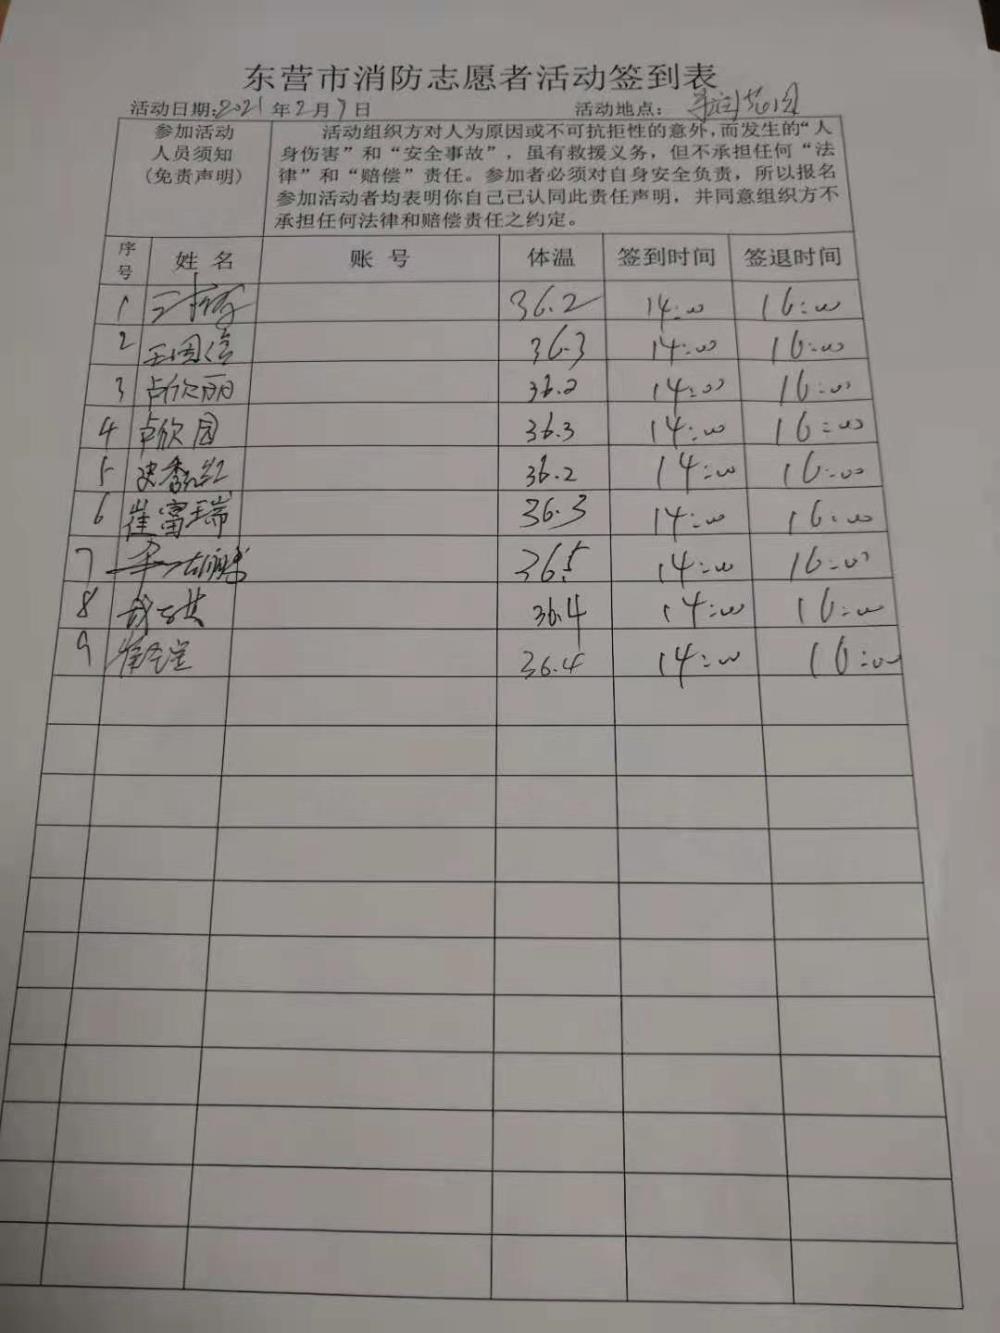 东营市消防志愿者活动签到表
活动日期:2021年2月7日 活动地点:
参加活动
人员须知
(免责声明)
活动组织方对人为原因或不可抗拒性的意外,而发生的“人
身伤害”和“安全事故”,虽有救援义务,但不承担任何“法
律”和“赔偿”责任。参加者必须对自身安全负责,所以报名
参加活动者均表明你自己已认同此责任声明,并同意组织方不
承担任何法律和赔偿责任之约定。
序号 姓名 账号 体温 签到时间 签退时间
1 36.2 14:00 16:00
2 王国信 36.3 14:00 16:00
3 卢欣丽 36.2 14:00 16:00
4 卢欣园 36.3 14:00 16:00
5 36.2 14:00 16:00
6 崔富瑞 36.3 14:00 16:00
7 36.5 14:00 16:00
8 36.4 14:00 16:00
9 36.4 14:00 16:00